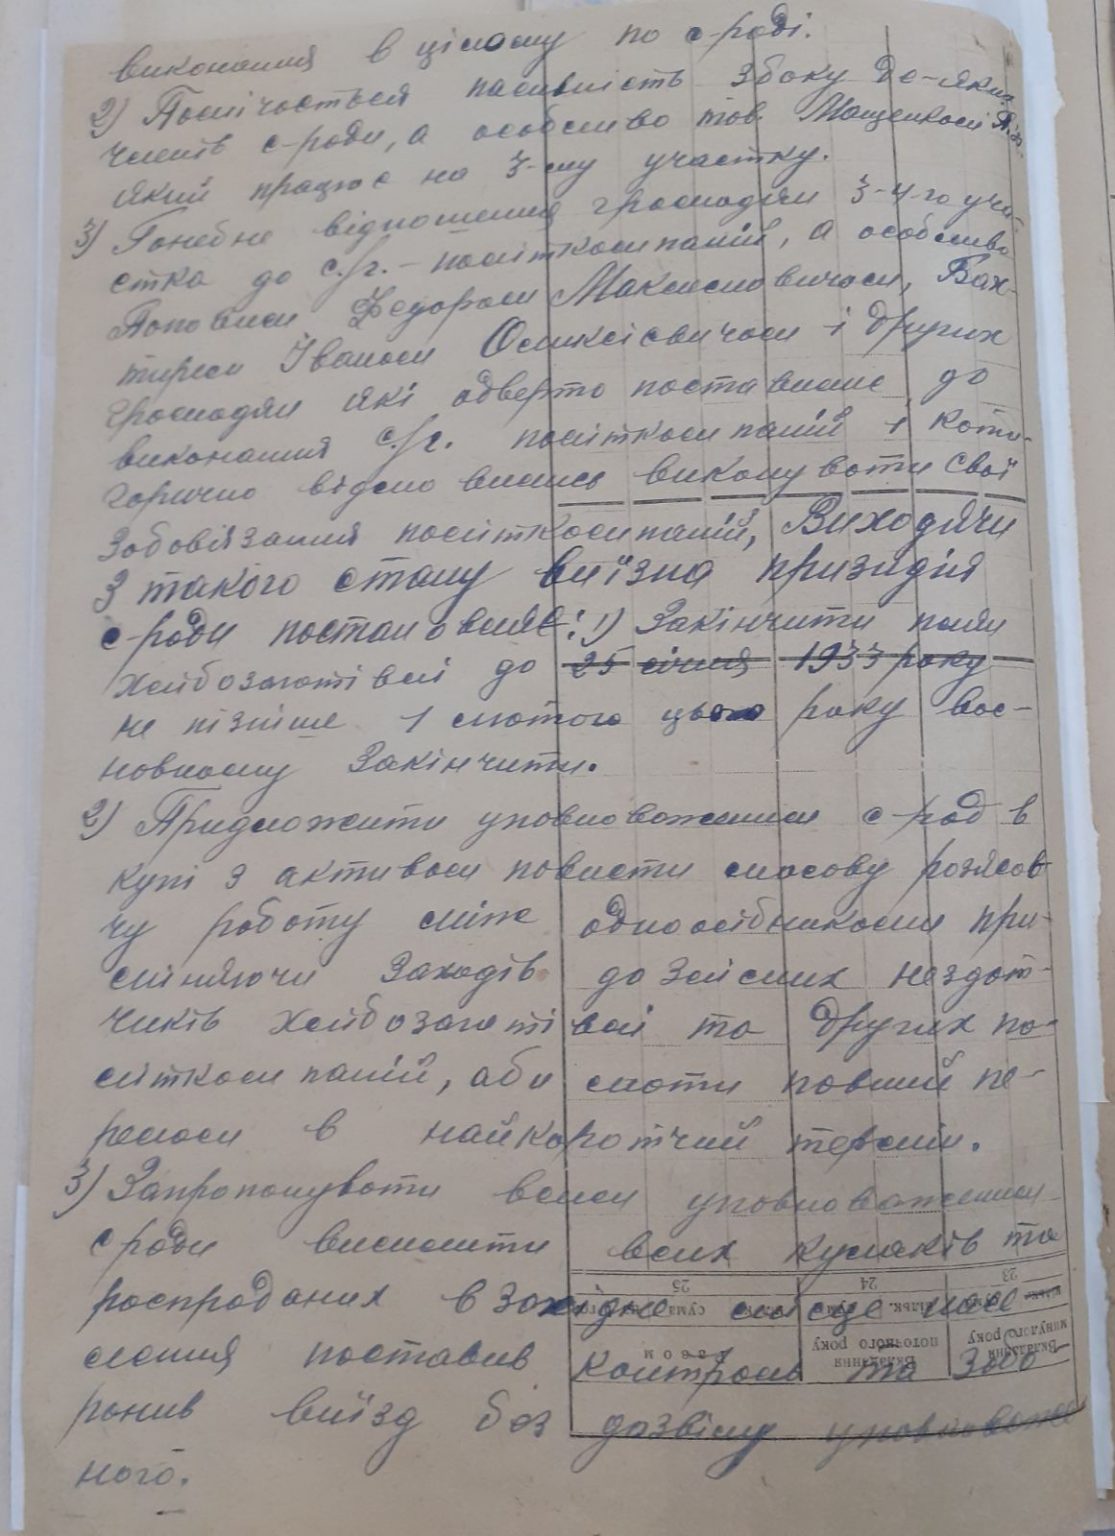 виконання в цілому по с-раді.
2) Помічається пасивність збоку де-яких
членів с-ради, а особливо тов. Мащенком
який працює на 3-му участку.
3) Ганебне відношення громадян 3-4-го уча-
стка до с/г. – політкомпаній, а особливо
Поповим Федором Максимовичом, Бах-
тиром Іваном Оликсієвичом і других
громадян які одверто поставише до
виконання с/г. політкомпаній і кати-
горично відмовились виконувати свої
зобовязання політкомпаній, Виходячи
з такого стану виїзна призидія
с-ради постановляє: 1) Закінчити план
хлібозаготівлі до 25 січня 1933 року
не пізніше 1 лютого цього року вос-
новному закінчити.
2) Придложити уповноваженим с-рад в
купі з активом повисти масову розясов-
чу роботу між одноосібниками при-
міняючи заходів до зеісних нездат-
чиків хлібозаготівлі та других по-
літкомпаній, аби мати повний пе-
релом в найкоротчий термін.
3) Запропонувати всим уповноваженим
сради висилити всих куркулів та
роспроданих в западне місце насе-
лення поставив контроль та забо-
ронив виїзд без дозвілу уповноваже
ного.
25
24
23
сума
кільк.
разом
Вкладання поточного року
Вкладання минулого року